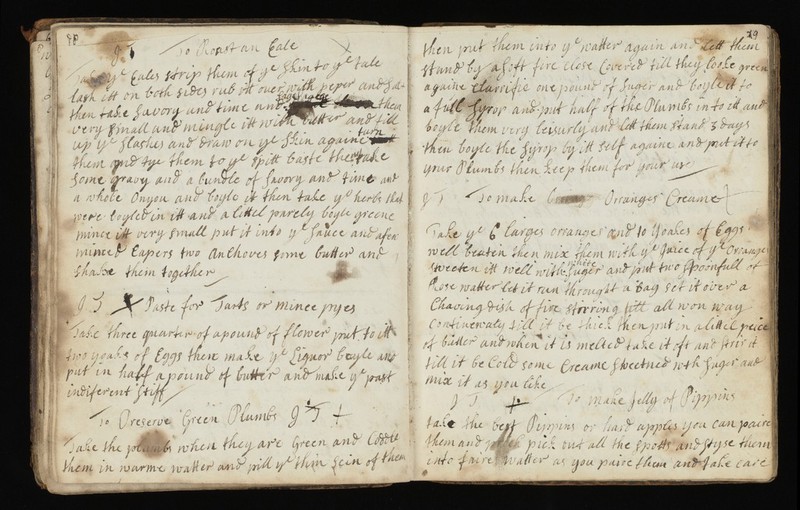 98
J T To Roast an Eale
Take yᵉ Eales strip them of yᵉ Skin to yᵉ tale
lash itt on both sides rub itt over with peper and Salt
then take Savory and time and then
very small and mingle itt with butter and fill
up yᵉ slashes and draw on yᵉ Skin againe turn
them and tye them to yᵉ spitt baste them take
some gravy and a bundle of Savory and time and
a whole Onyon and boyle it then take yᵉ herbs that
were boyled in itt and a littel parsly boyle greene
mince itt very small put it into yᵉ sauce and a few
minced Capers two Anchoves some butter and
shake them together
J T Paste for Tarts or mince pyes
Take three quarter of a pound of flower put to itt
two yoaks of Eggs then make yᵉ Liquor boyle and
put in half a pound of butter and make yᵉ past
indiferent stiff
To Preserve Green Plumbs J T
Take the plumbs when they are Green and Codle
them in warme watter and pill yᵉ thin scin of them
99
then put them into yᵉ watter again and lett them
stand by a soft fire close Covered till they looke green
againe Clarrifie one pound of Suger and boyle it to
a full Syrop and put half of the Plumbs into itt and
boyle them very leisurly and lett them stand 3 days
then boyle the Syrop by itt self againe and put it to
your Plumbs then keep them for your use
J T To make Orranges Creame
Take yᵉ 6 larges oranges and 10 yoakes of Eggs
well beaten then mix them with yᵉ Juice of yᵉ Oranges
sweeten itt well with white Suger and put two spoonfull of
Rose watter let it run throught a bag set it over a
Chaving dish of fire stirring itt all won way
Continerwaly till it be thick then put in a littel peice
of butter and when it is melted take it oft and stir it
till it be Cold some Creame sweetned with Suger and
mix it as you like
J T To make Jelly of Pippins
take the best Pippins or hard apples you can paire
them and pick out all the spotts and styse them
into faire watter as you paire them and take care